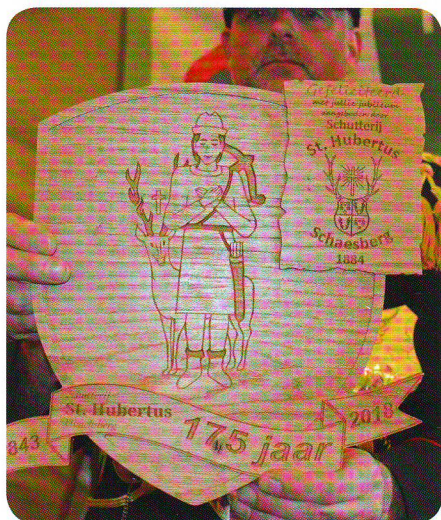 Gefeliciteerd
met jullie jubileum
aangeboden door
Schutterij
St. Hubertus
Schaesberg
1884
Schutterij
St. Hubertus
175 jaar
843
2018